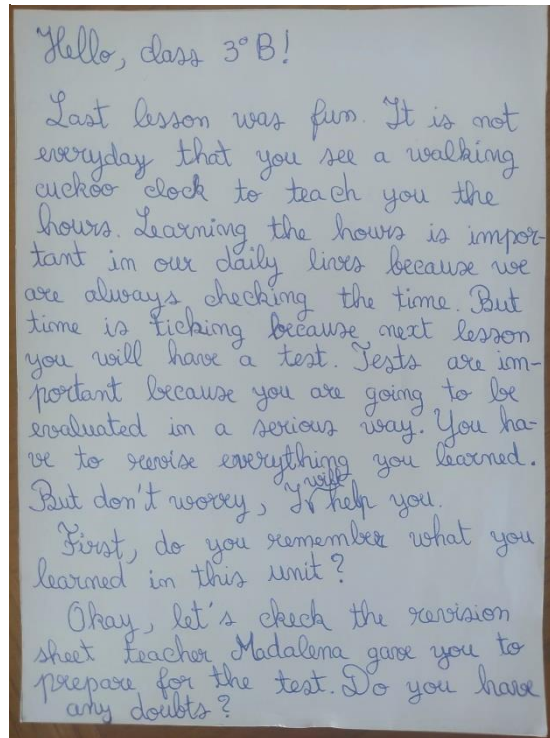 Hello, class 3º B!
Last lesson was fun. It is not
everyday that you see a walking
cuckoo clock to teach you the
hours. Learning the hours is impor-
tant in our daily lives because we
are always checking the time. But
time is ticking because next lesson
you will have a test. Tests are im-
portant because you are going to be
evaluated in a serious way. You ha-
ve to revise everything you learned.
But don't worry, I will help you.
First, do you remember what you
learned in this unit?
Okay, let's ckeck the revision
sheet teacher Madalena gave you to
prepare for the test. Do you have
any doubts?